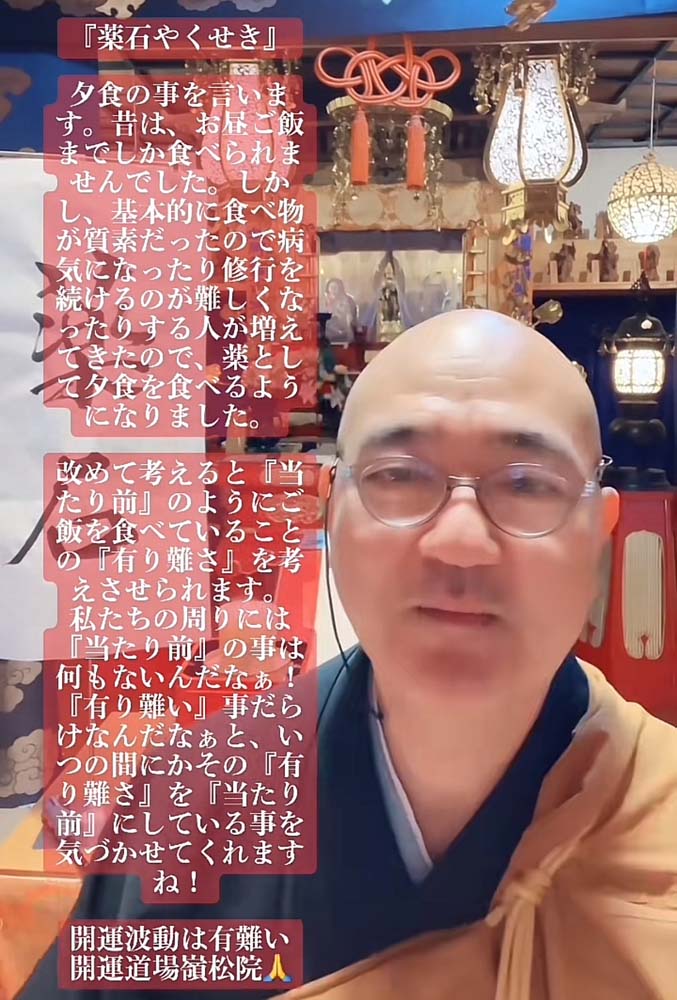 『薬石やくせき』
夕食の事を言いま
す。昔は、お昼ご飯
までしか食べられま
せんでした。しか
し、基本的に食べ物
が質素だったので病
気になったり修行を
続けるのが難しくな
ったりする人が増え
てきたので、薬とし
て夕食を食べるよう
になりました。
改めて考えると『当
たり前』のようにご
飯を食べていること
の『有り難さ』を考
えさせられます。
私たちの周りには
『当たり前』の事は
何もないんだなぁ！
『有り難い』事だら
けなんだなぁと、い
つの間にかその『有
り難さ』を『当たり
前』にしている事を
気づかせてくれます
ね！
開運波動は有難い
開運道場嶺松院🙏
薬
石